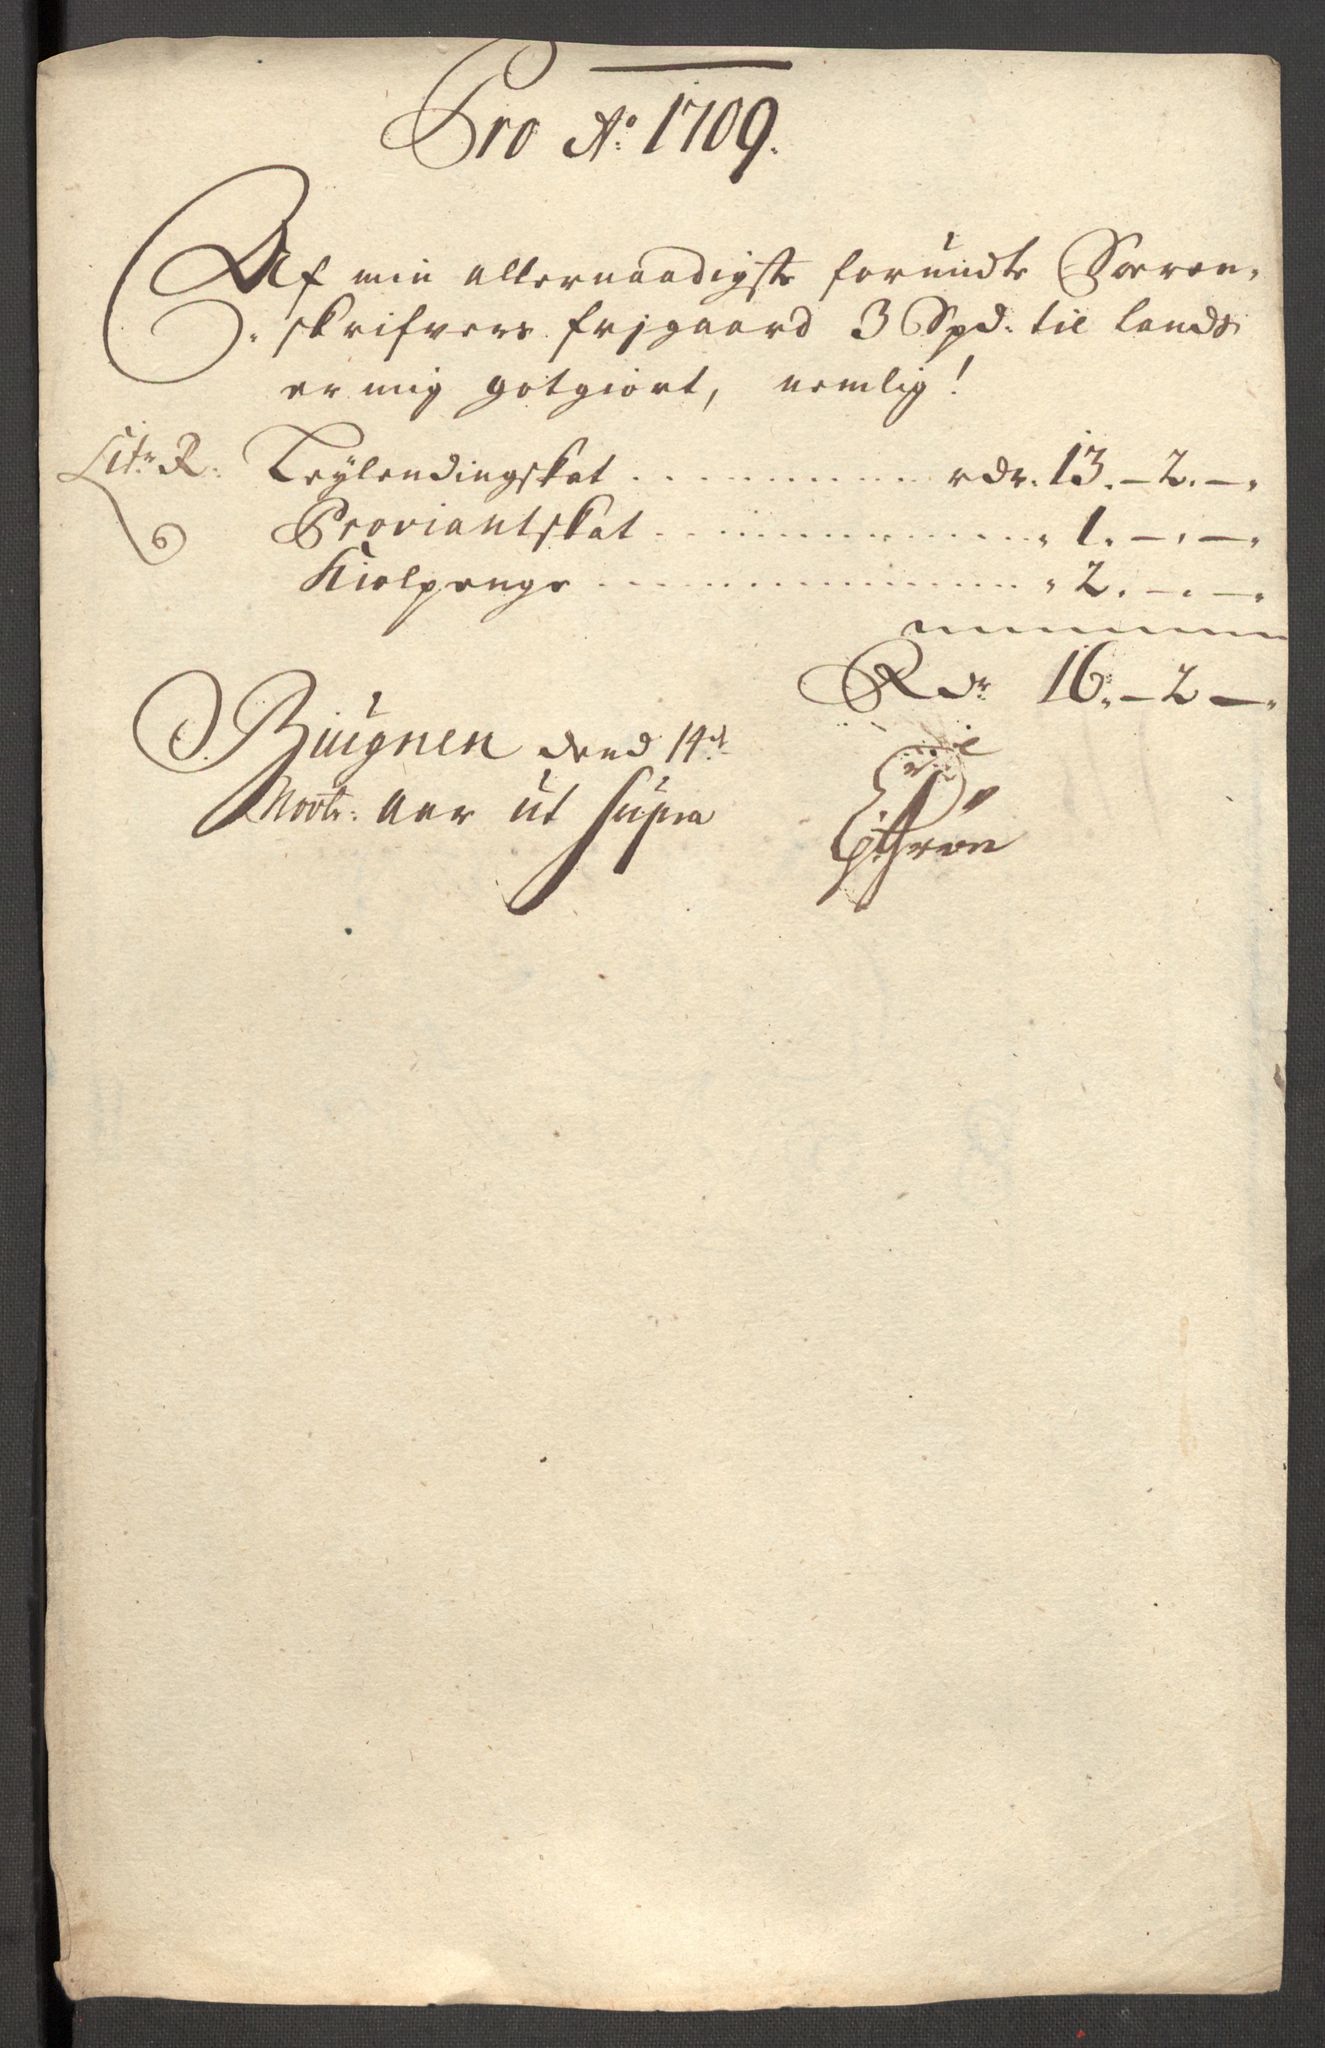 Pro Ao: 1709.
Af min allernaadigste forundte Soren-
skrifvers frjgaard 3 Spd: til lands
er mig gotgiort, nemlig!
Litr R: Leylendingskat rdr. 13.-2.-.
Proviantskat " 1.-.-.
Kiolpenge " 2.-.-.
Rdr 16.-2-.
Biugnen dend 14d
Novbr: aar ut supra